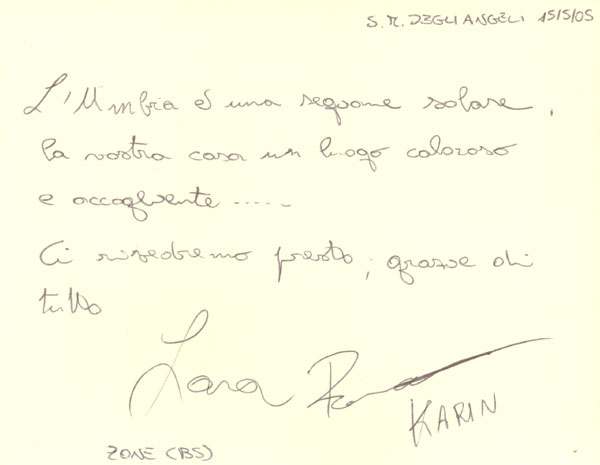 S. M. DEGLI ANGELI 15/5/05
L'Umbria è una regione solare,
la vostra casa un luogo caloroso
e accogliente .....
Ci rivedremo presto, grazie di
tutto
Lara
KARIN
ZONE (BS)